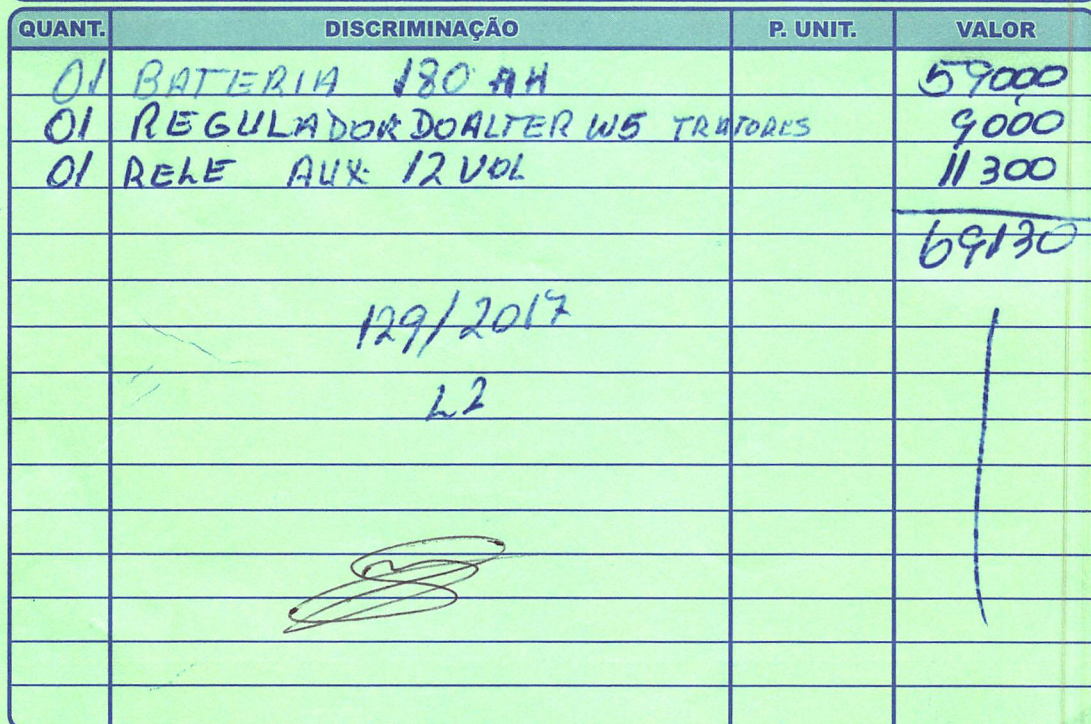 QUANT. DISCRIMINAÇÃO P. UNIT. VALOR
01 BATERIA 180 AH 59000
01 REGULADOR DO ALTER W5 TRATORES 9000
01 RELE AUX. 12 VOL 11300
69130
129/2017
L2